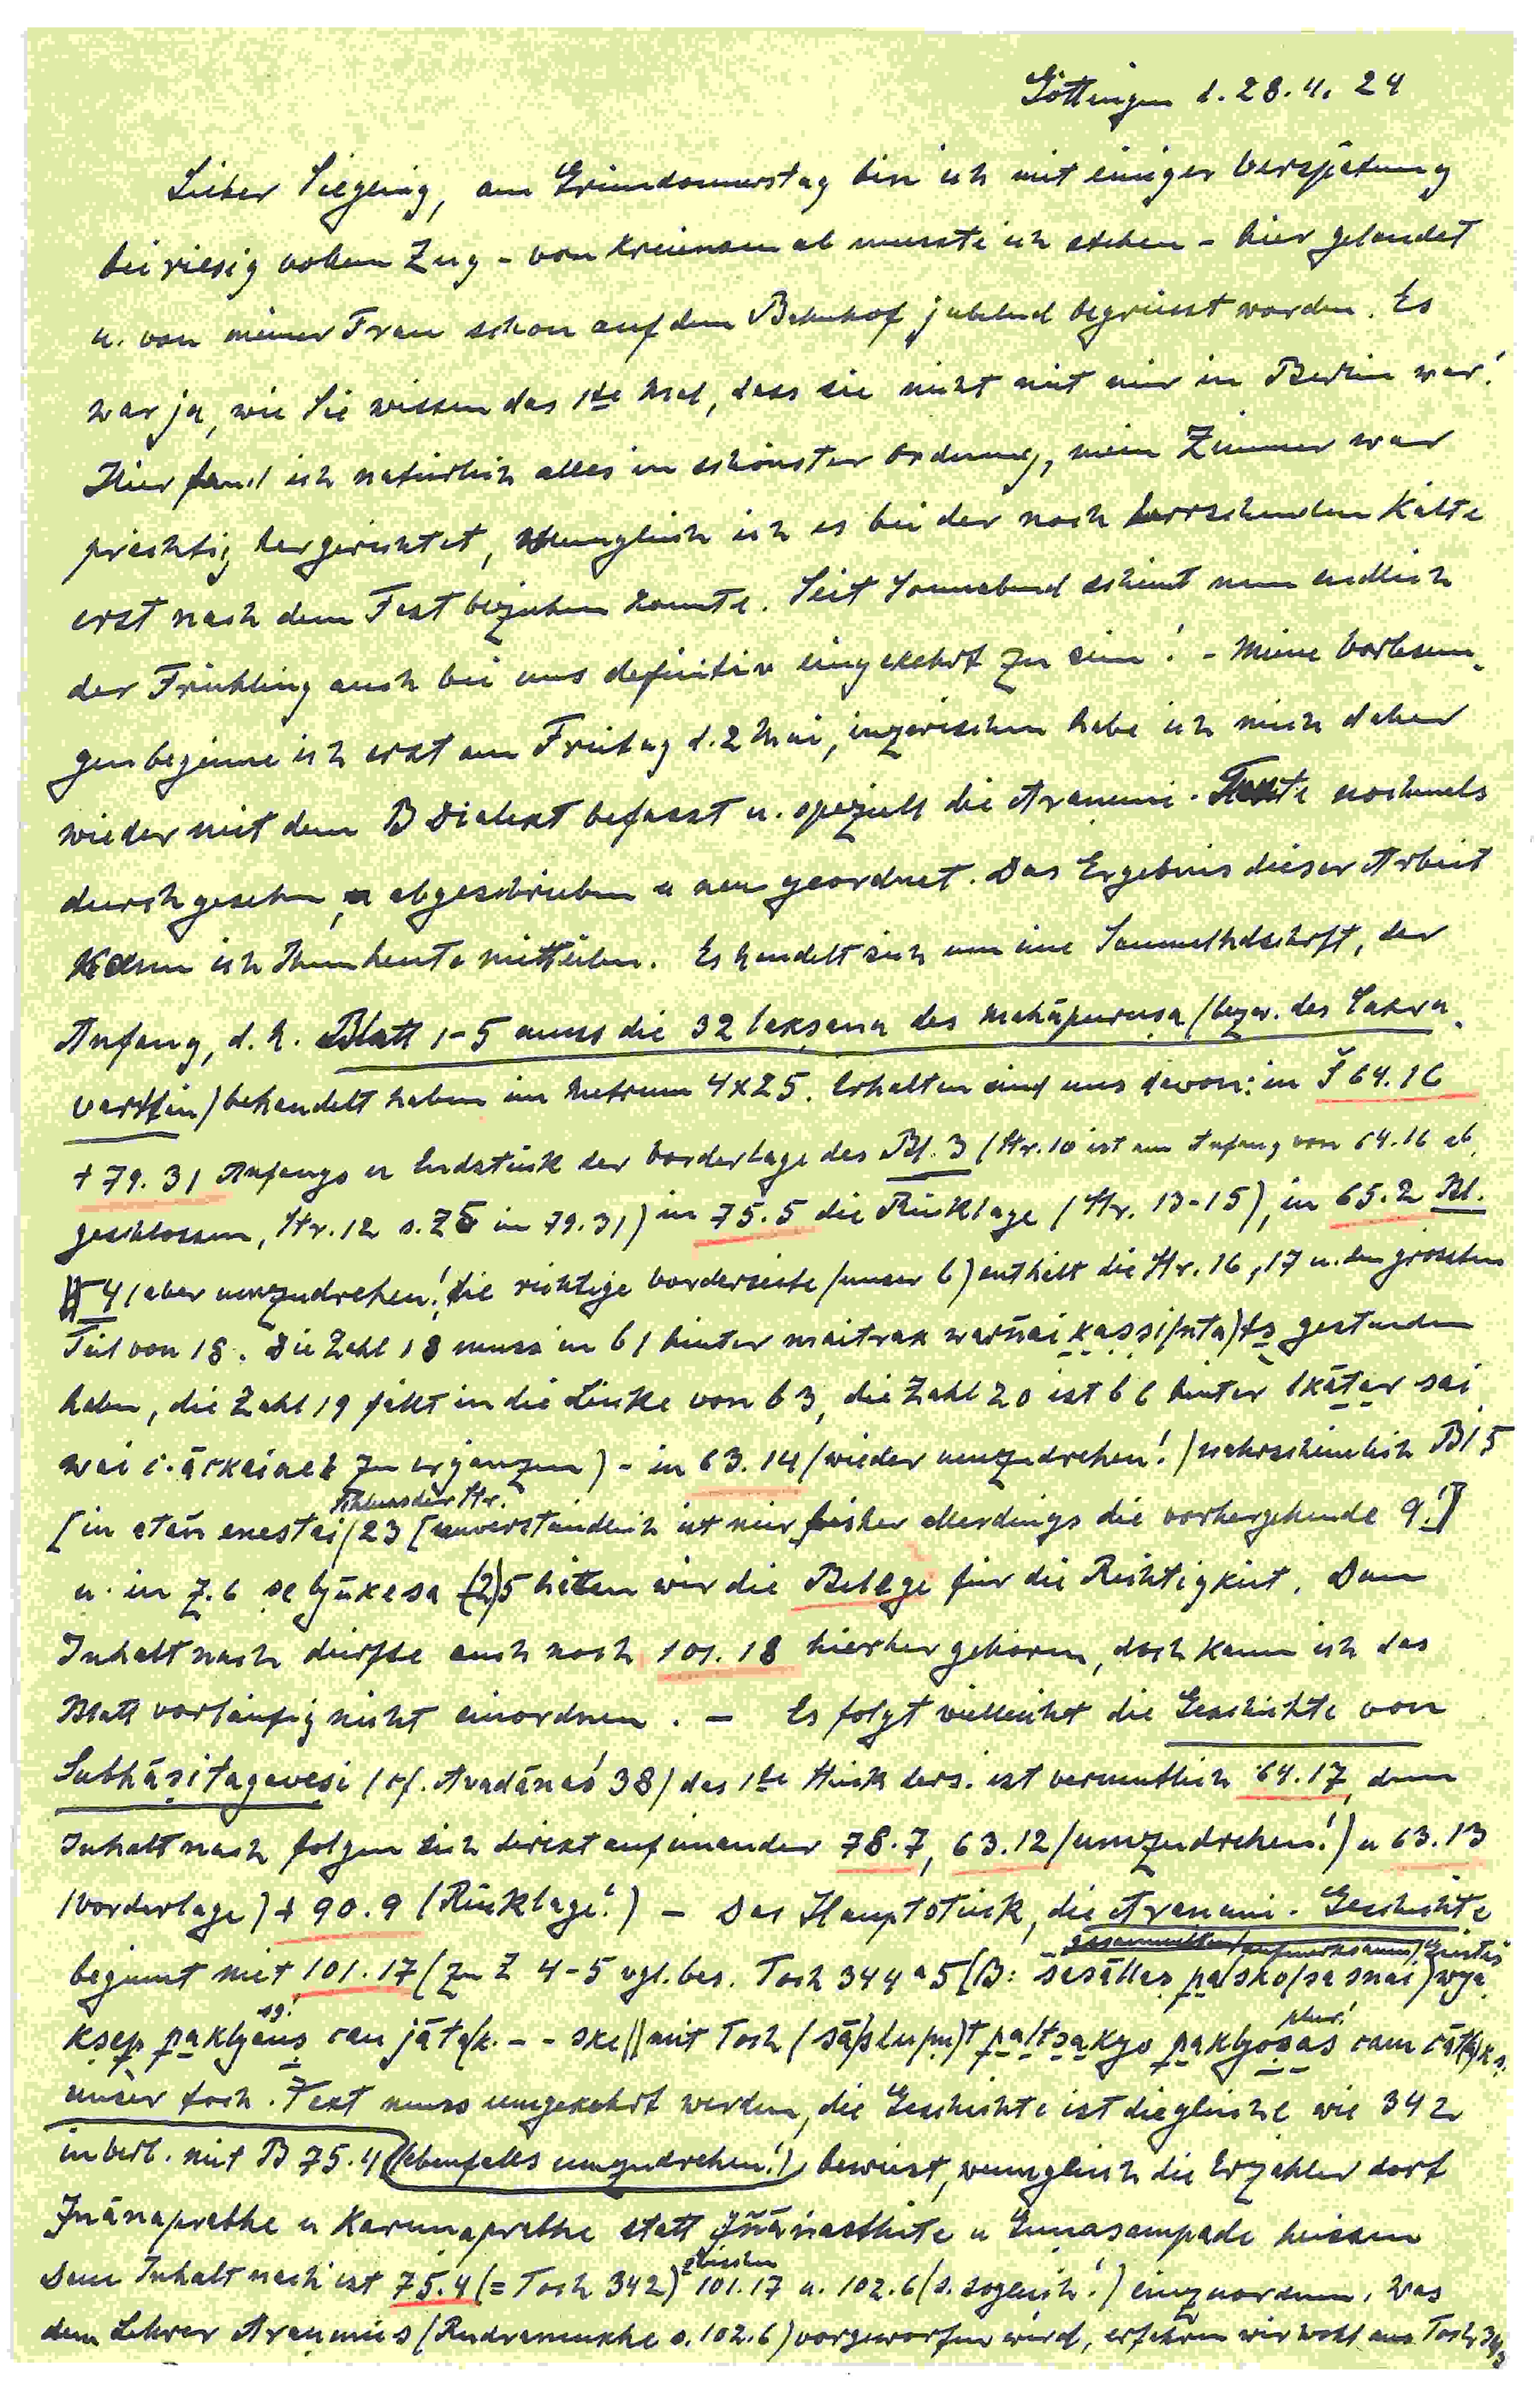 Göttingen d. 28. 4. 24
Lieber Siegling, am Gründonnerstag bin ich mit einiger Verspätung
bei riesig vollem Zug - von Kreiensen ab musste ich stehen - hier gelandet
u. von meiner Frau schon auf dem Bahnhof jubelnd begrüsst worden. Es
war ja, wie Sie wissen das 1te Mal, dass sie nicht mit mir in Berlin war!
Hier fand ich natürlich alles in schönster Ordnung, mein Zimmer war
prächtig hergerichtet, wenngleich ich es bei der noch herrschenden Kälte
erst nach dem Fest beziehen konnte. Seit Sonnabend scheint nun endlich
der Frühling auch bei uns definitiv eingekehrt zu sein! - Meine Vorlesun-
gen beginne ich erst am Freitag d. 2 Mai, inzwischen habe ich mich daher
wieder mit dem B Dialekt befasst u. speziell die Araṇemi-Texte nochmals
durchgesehen, abgeschrieben u neu geordnet. Das Ergebnis dieser Arbeit
kann ich Ihnen heute mitteilen. Es handelt sich um eine Sammelhdschrft, der
Anfang, d. h. Blatt 1-5 muss die 32 lakṣaṇa des mahāpuruṣa (bezw. des Cakra-
vartin) behandelt haben im Metrum 4x25. Erhalten sind uns davon: in Š 64.16
+ 79.31 Anfangs u Endstück der Vorderlage des Bl. 3 (Str. 10 ist am Anfang von 64.16 ab-
geschlossen, Str. 12 s. Z5 in 79.31) in 75.5 die Rücklage (Str. 13-15), in 65.2 Bl.
4 (aber umzudrehen! die richtige Vorderseite (unser b) enthält die Str. 16, 17 u. den grössten
Teil von 18. Die Zahl 18 muss in b1 hinter maitrak warñai kässi(nta)ts gestanden
haben, die Zahl 19 fällt in die Lücke von b3, die Zahl 20 ist b6 hinter lkātar sai
wai c. ārkainet zu ergänzen) - in 63.14 (wieder umzudrehen!) wahrscheinlich Bl 5
Schluss der Str.
[in etañ enestai (23 [unverständlich ist mir bisher allerdings die vorhergehende 9!]]
u. in Z. 6 se ly k esa (2)5 hätten wir die Belege für die Richtigkeit. Dem
Inhalt nach dürfte auch noch 101.18 hierher gehören, doch kann ich das
Blatt vorläufig nicht einordnen. - Es folgt vielleicht die Geschichte von
Subhāṣitagaveṣi (cf. Avadānaś 38) das 1te Stück ders. ist vermutlich 64.17, dem
Inhalt nach folgen sich direkt aufeinander 78.7, 63.12 (umzudrehen!) u 63.13
(Vorderlage) + 90.9 (Rücklage!) - Das Hauptstück, die Araṇemi-Geschichte
beginnt mit 101.17 (zu Z 4-5 vgl. bes. Toch 344 a 5 [B:
sg!
plur!
unser toch. Text muss umgekehrt werden, die Geschichte ist die gleiche wie 342
in Verb. mit B 75.4 (ebenfalls umzudrehen!) beweist, wenngleich die Erzähler dort
Jnānaprabhe u Karunaprabhe statt Jñānasthite u Guṇasampade heissen
zwischen
Dem Inhalt nach ist 75.4 (= Toch 342) 101.17 u. 102.6 (s. sogleich!) einzuordnen, was
dem Lehrer Araṇemis (Rudramukhe s. 102.6) vorgeworfen wird, erfahren wir wohl aus Toch 343